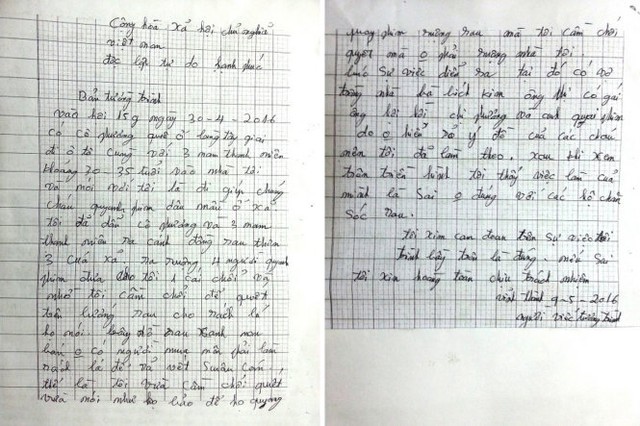 Cộng hòa xả hội chủ nghĩa
việt nam
độc lập tự do hạnh phúc
Bản tường trình
vào hồi 15g ngày 30-4-2016
có cô phương quê ở
đi ô tô cùng với 3 nam thanh niên
khoảng 30-35 tuổi vào nhà tôi
và nói với tôi là đi giúp chúng
cháu quay phim rau mầu ở xả
tôi đả dẩn cô phương và 3 nam
thanh niên ra cánh đồng rau thôn
3 của xả ra ruộng 4 người quay
phim đưa cho tôi 1 cái chổi và
nhờ tôi cầm chổi để quét
trên luống rau cho rách lá
họ nói rau xanh non
bán o có người mua nên phải làm
rách lá để
thế là tôi vừa cầm chổi quét
vừa nói như họ bảo để họ quay
quay phim ruộng rau mà tôi cầm chổi
quyét mà o phải ruộng nhà tôi
lúc sự việc diển ra tại đó có vợ
chồng nhà bà lịch kiên ông thị có gái
ông hồi chị phương và anh quay phim
do o hiểu rỏ ý đồ của các cháu
nên tôi đả làm theo. sau khi xem
trên truyền hình tôi thấy việc làm của
mình là sai o đúng với các hộ chăm
sóc rau.
tôi xin cam đoan trên sự việc tôi
trình bầy trên là đúng. nếu sai
tôi xin hoàng toàn chịu trách nhiệm
vĩnh thịnh 9-5-2016
người viết tường trình